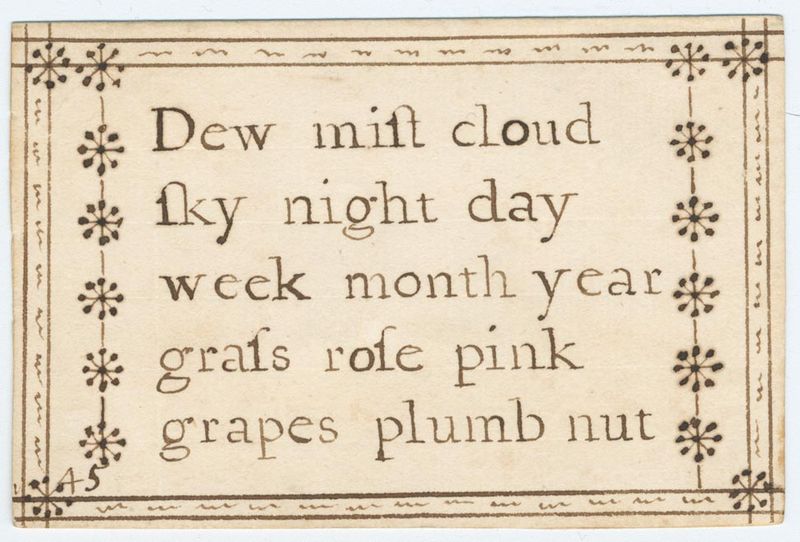 Dew miſt cloud
ſky night day
week month year
graſs roſe pink
grapes plumb nut
45